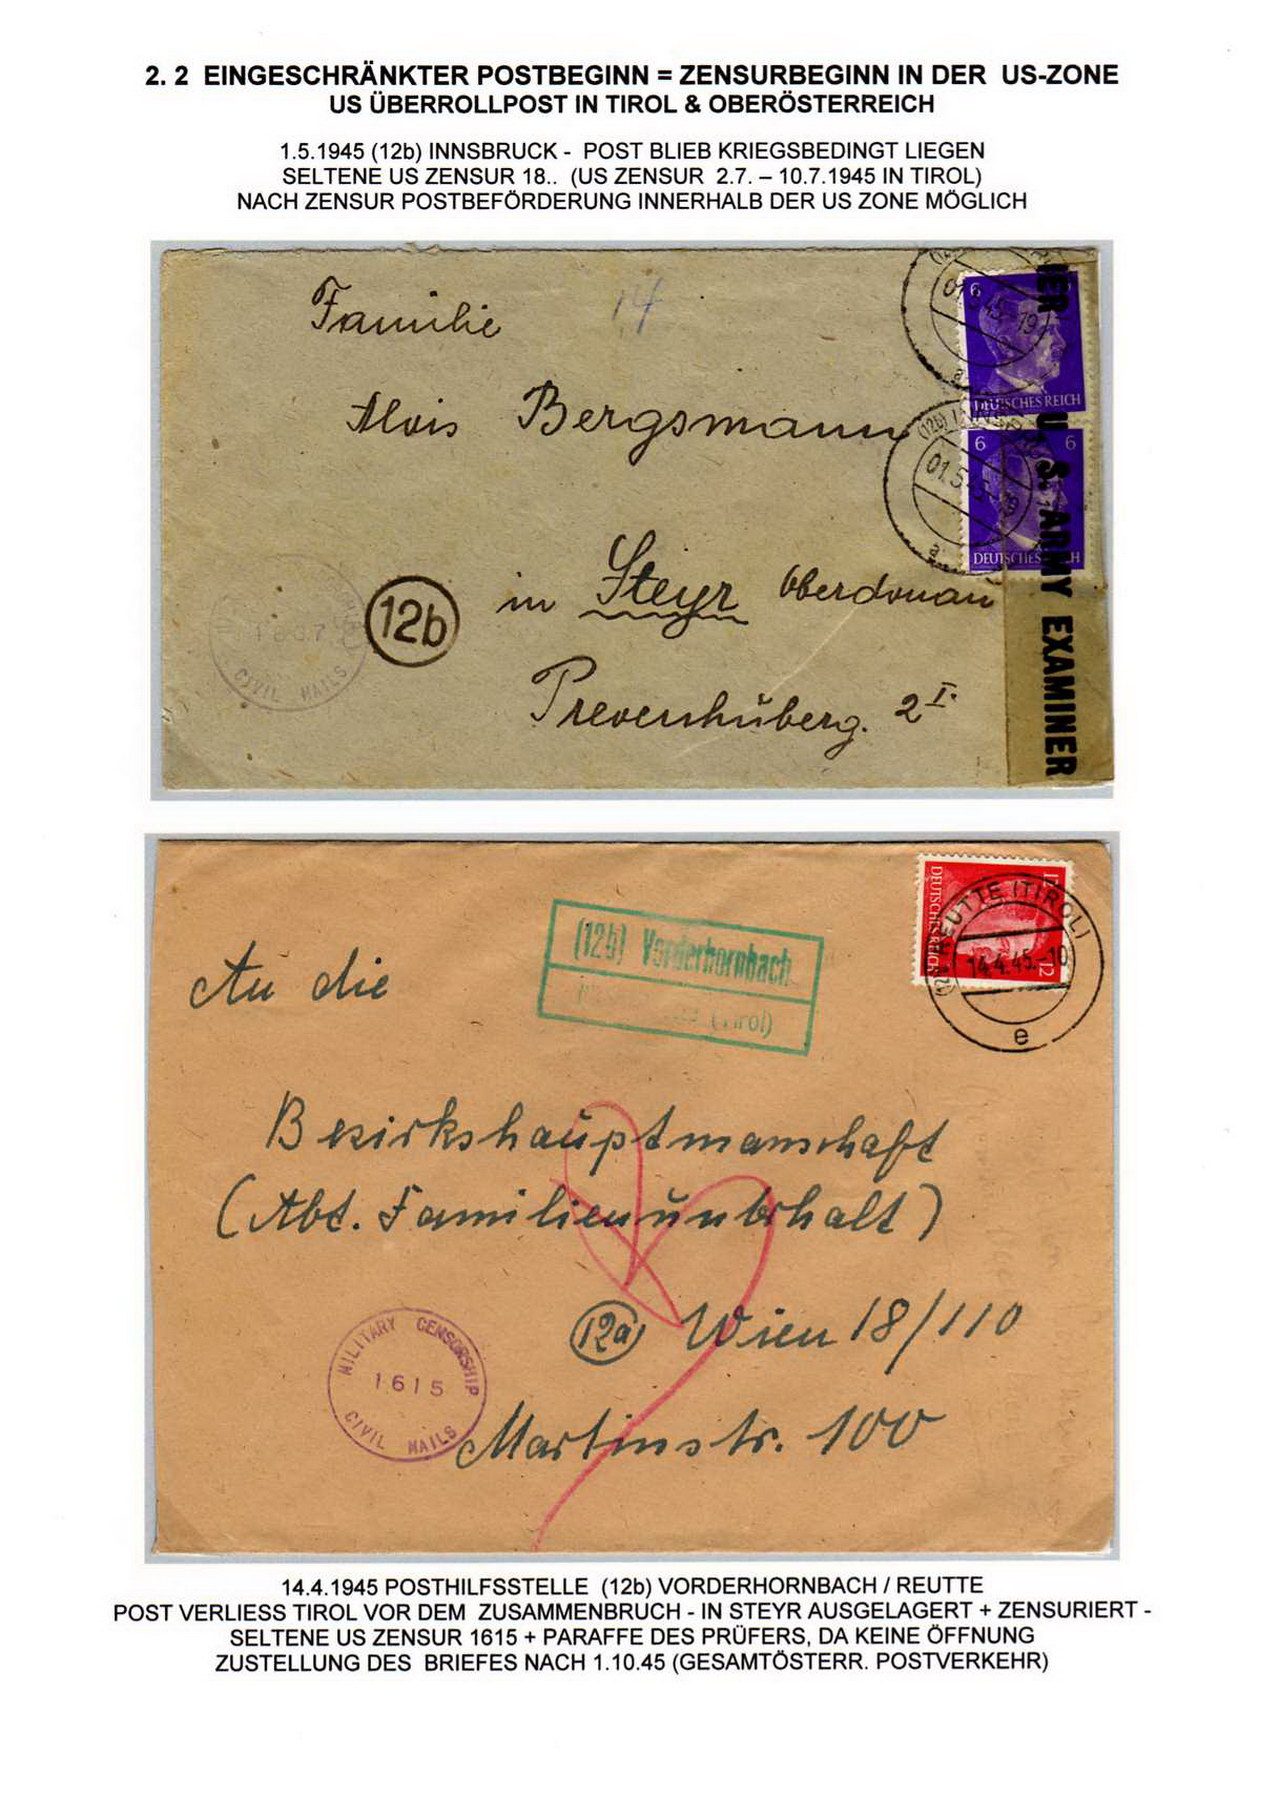 2. 2 EINGESCHRÄNKTER POSTBEGINN = ZENSURBEGINN IN DER US-ZONE
US ÜBERROLLPOST IN TIROL & OBERÖSTERREICH
1.5.1945 (12b) INNSBRUCK - POST BLIEB KRIEGSBEDINGT LIEGEN
SELTENE US ZENSUR 18.. (US ZENSUR 2.7. – 10.7.1945 IN TIROL)
NACH ZENSUR POSTBEFÖRDERUNG INNERHALB DER US ZONE MÖGLICH
Familie
14
Alois Bergsmann
in Steyr Oberdonau
12b
Prevenhüberg. 2 I.
CIVIL MAILS
6
DEUTSCHES REICH
6 6
DEUTSCHES REICH
U.S. ARMY EXAMINER
(12b) Vorderhornbach
(Tirol)
12 DEUTSCHES REICH 12
REUTTE (TIROL)
14.4.45.-10
e
An die
Bezirkshauptmannschaft
(Abt. Familienunterhalt)
12a Wien 18/110
Martinstr. 100
MILITARY CENSORSHIP
1615
CIVIL MAILS
14.4.1945 POSTHILFSSTELLE (12b) VORDERHORNBACH / REUTTE
POST VERLIESS TIROL VOR DEM ZUSAMMENBRUCH - IN STEYR AUSGELAGERT + ZENSURIERT -
SELTENE US ZENSUR 1615 + PARAFFE DES PRÜFERS, DA KEINE ÖFFNUNG
ZUSTELLUNG DES BRIEFES NACH 1.10.45 (GESAMTÖSTERR. POSTVERKEHR)